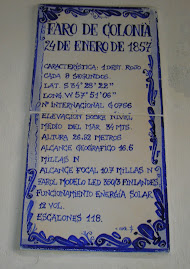 FARO DE COLONIA
24 DE ENERO DE 1857
CARACTERÍSTICA: 1 DEST. ROJO
CADA 9 SEGUNDOS
LAT. S 34° 28' 22"
LONG. W 57° 51' 06"
Nº INTERNACIONAL G 0766
ELEVACION SOBRE NIVEL
MEDIO DEL MAR 34 MTS.
ALTURA 26.52 METROS
ALCANCE GEOGRAFICO 16.6
MILLAS N
ALCANCE FOCAL 10.7 MILLAS N
FAROL MODELO LED 350/3 FINLANDES
FUNCIONAMIENTO ENERGÍA SOLAR
12 VOL.
ESCALONES 118.